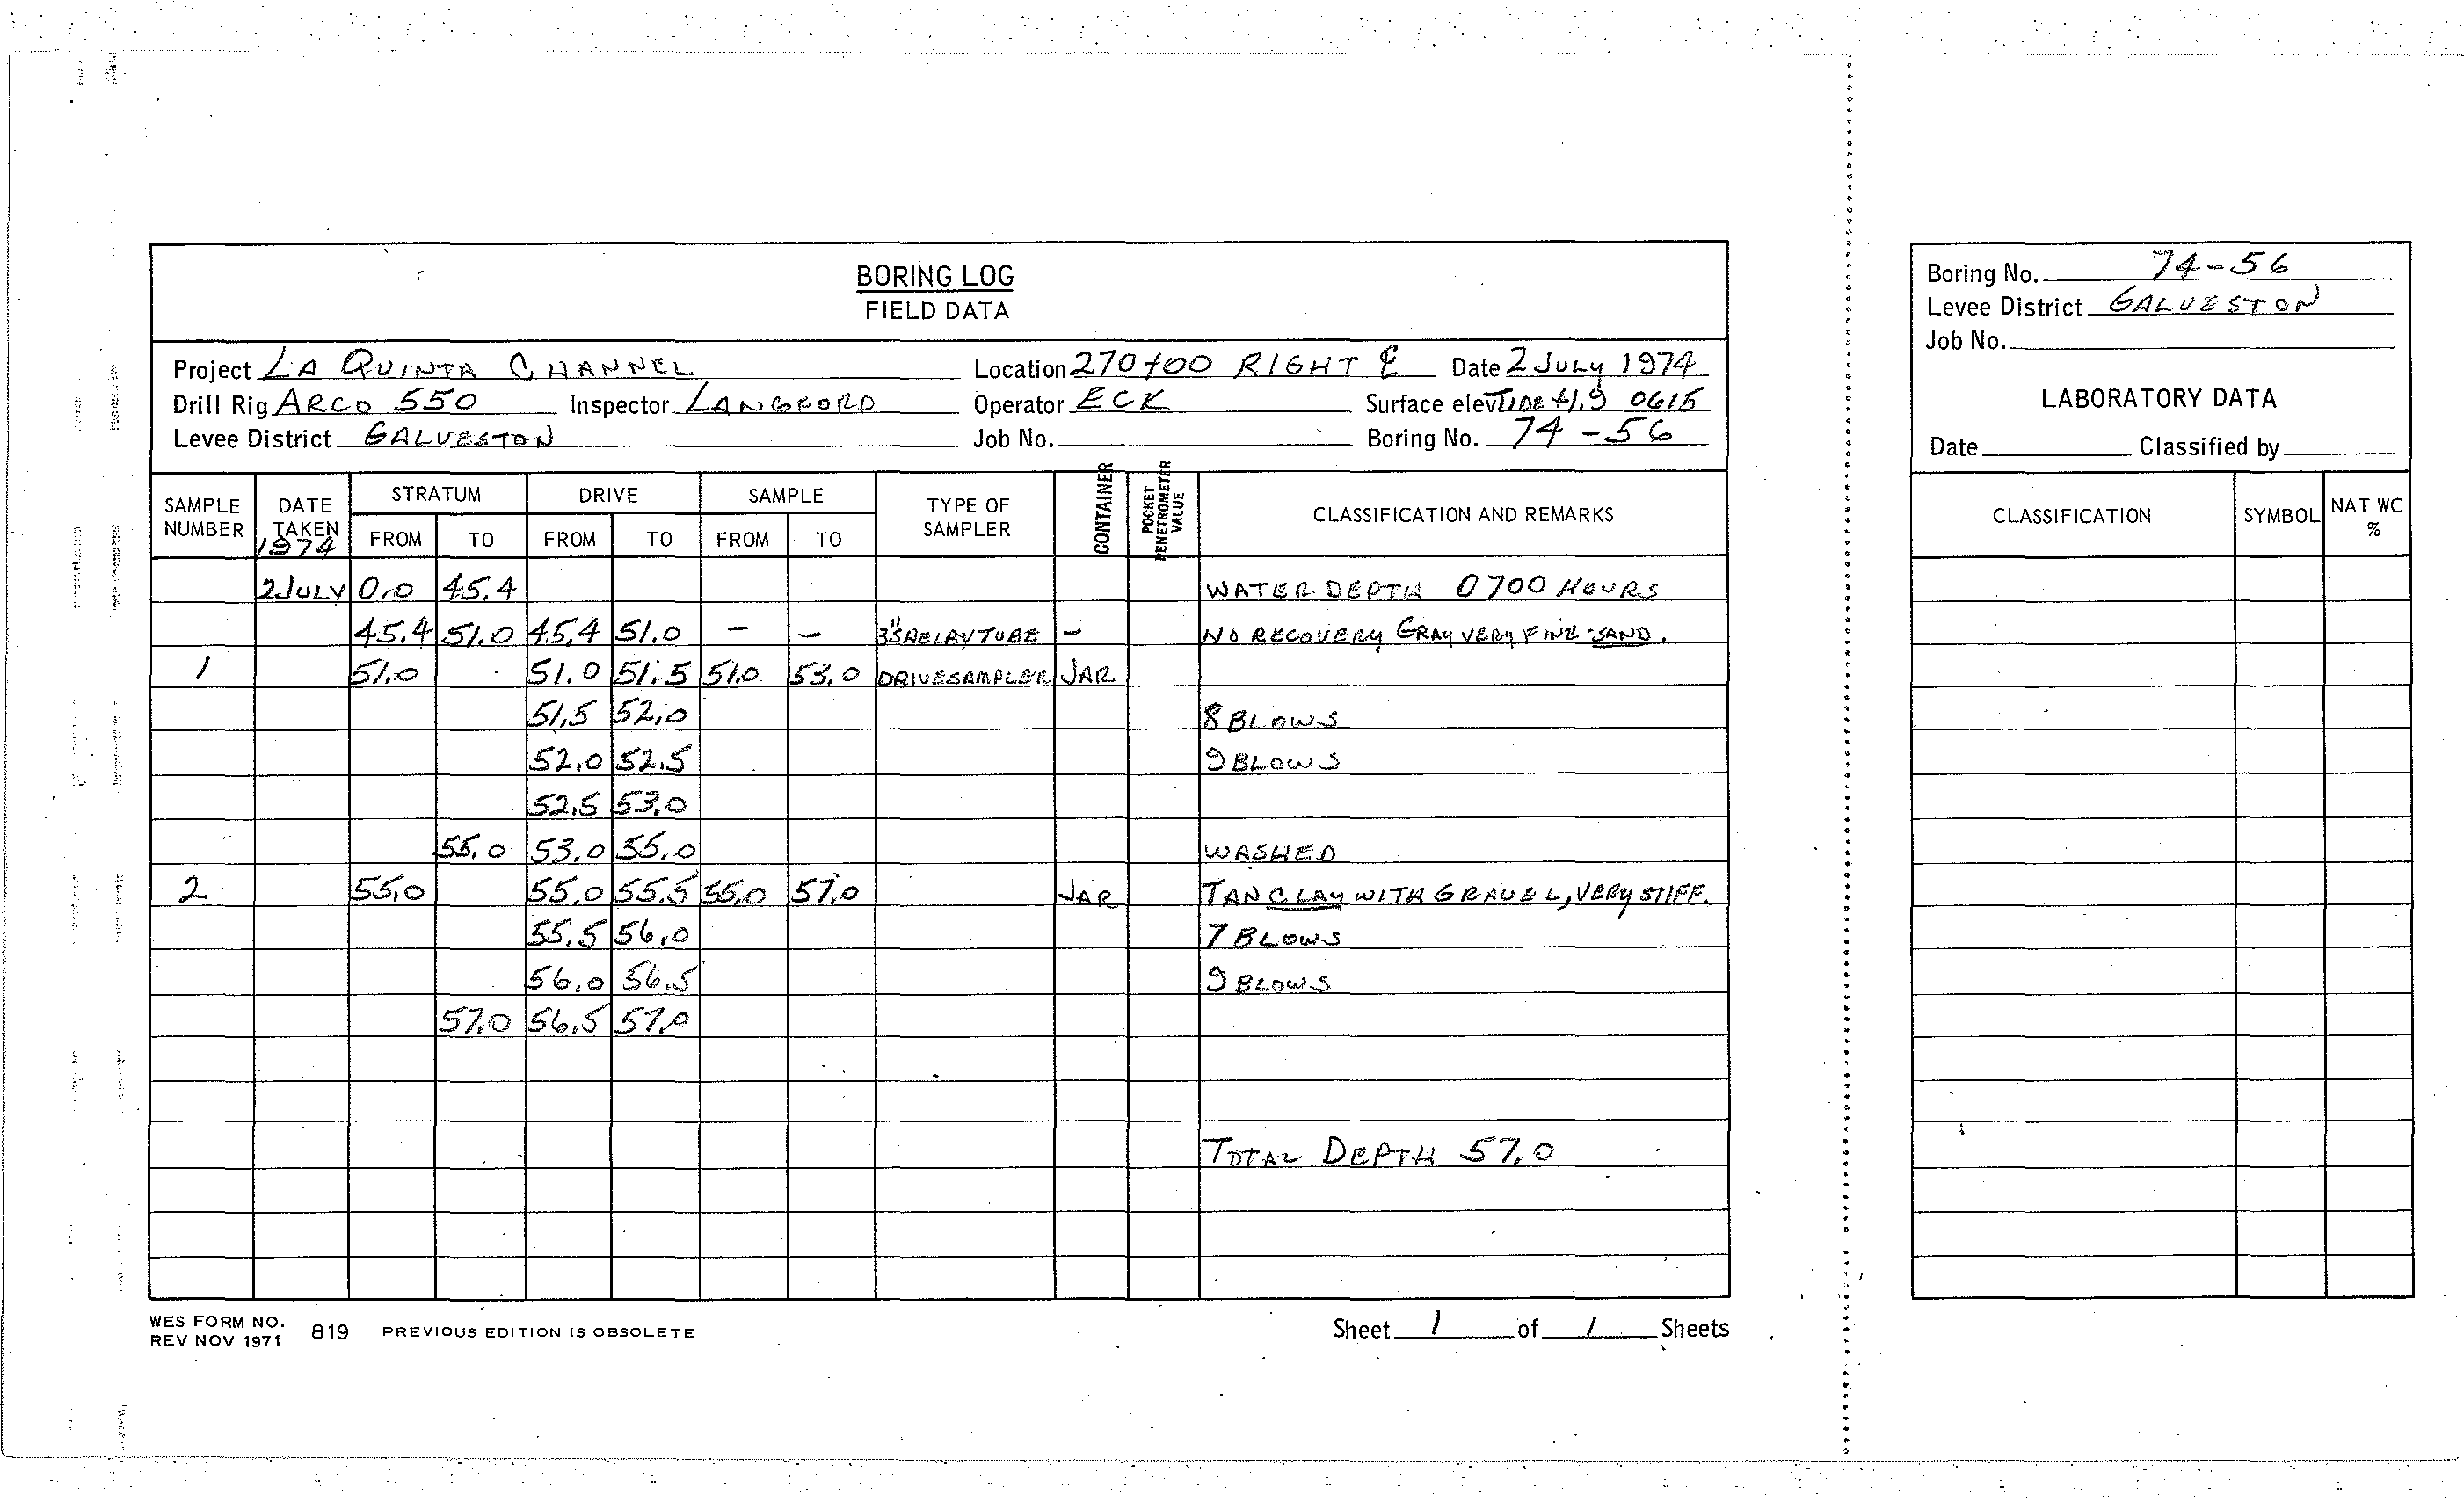 BORING LOG
FIELD DATA
Project LA QUINTA CHANNEL Location 270+00 RIGHT ℄ Date 2 JULY 1974
Drill Rig ARCO 550 Inspector LANGFORD Operator ECK Surface elev TIDE +1.9 0615
Levee District GALVESTON Job No. Boring No. 74-56
SAMPLE NUMBER DATE TAKEN 1974 STRATUM FROM TO DRIVE FROM TO SAMPLE FROM TO TYPE OF SAMPLER CONTAINER POCKET PENETROMETER VALUE CLASSIFICATION AND REMARKS
2 JULY 0.0 45.4 WATER DEPTH 0700 HOURS
45.4 51.0 45.4 51.0 - - 3" SHELBY TUBE - NO RECOVERY GRAY VERY FINE SAND.
1 51.0 51.0 51.5 51.0 53.0 DRIVE SAMPLER JAR
51.5 52.0 8 BLOWS
52.0 52.5 9 BLOWS
52.5 53.0
55.0 53.0 55.0 WASHED
2 55.0 55.0 55.5 55.0 57.0 JAR TAN CLAY WITH GRAVEL, VERY STIFF.
55.5 56.0 7 BLOWS
56.0 56.5 9 BLOWS
57.0 56.5 57.0
TOTAL DEPTH 57.0
WES FORM NO. 819 PREVIOUS EDITION IS OBSOLETE
REV NOV 1971
Sheet 1 of 1 Sheets
Boring No. 74-56
Levee District GALVESTON
Job No.
LABORATORY DATA
Date Classified by
CLASSIFICATION SYMBOL NAT WC %